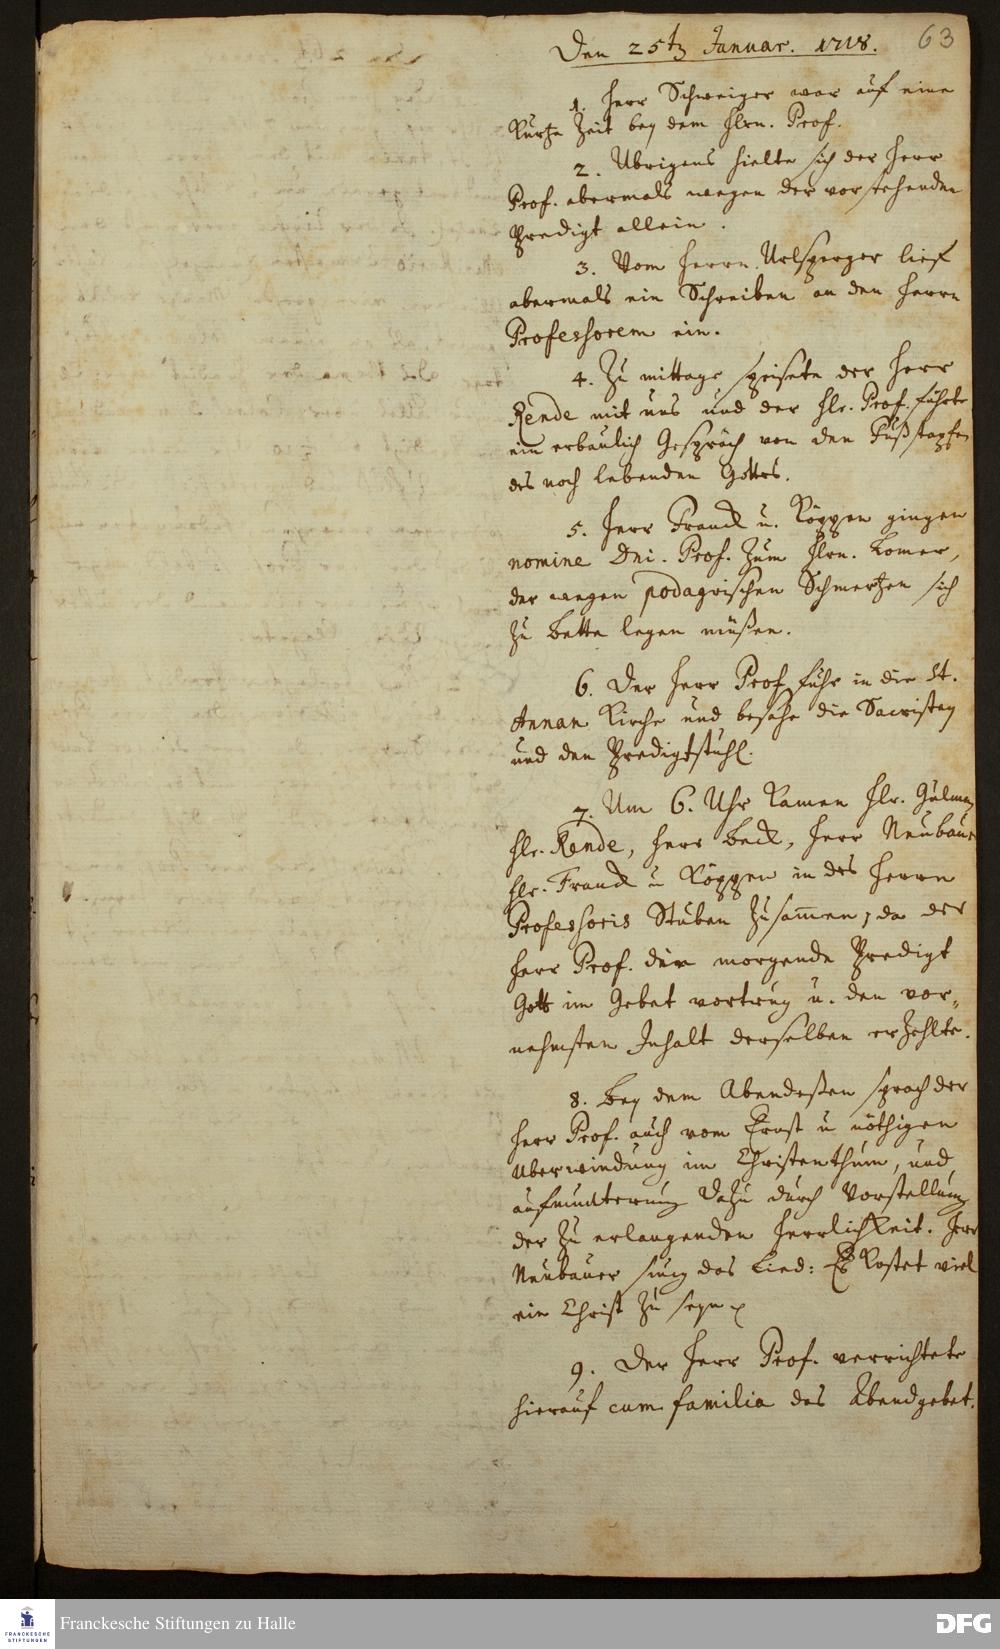 Den 25t. Januar. 1718.
63
1. Herr Schweiger war auf eine
kurtze Zeit bey dem Hrn. Prof.
2. Ubrigens hielte sich der Herr
Prof. abermals wegen der vorstehenden
Predigt allein.
3. Vom Herrn Urlsperger lief
abermals ein Schreiben an den Herrn
Professorem ein.
4. Zu mittage speisete der Herr
Rende mit uns und der Hr. Prof. führte
ein erbaulich Gespräch von den Fußstapfen
des noch lebenden Gottes.
5. Herr Franck u. Köppen gingen
nomine Dni. Prof. zum Hrn. Lomer,
der wegen podagrischen Schmertzen sich
zu Bette legen müßen.
6. Der Herr Prof. fuhr in die St.
Annan Kirche und besahe die Sacristey
und den Predigtstuhl.
7. Um 6. Uhr kamen Hr. Gulman
Hr. Rende, Herr Beck, Herr Neubauer
Hr. Franck u Köppen in des Herrn
Professoris Stuben zusamen, da der
Herr Prof. die morgende Predigt
Gott im Gebet vortrug u. den vor„
nehmsten Inhalt derselben erzehlte.
8. Bey dem Abendeßen sprach der
Herr Prof. auch vom Ernst u nöthigen
Uberwindung im Christenthum, und
aufmunterung dazu durch Vorstellung
der zu erlangenden Herrlichkeit. Herr
Neubauer sung das Lied: Es kostet viel
ein Christ zu seyn
9. Der Herr Prof. verrichtete
hierauf cum familia das Abendgebet.
FRANCKESCHE
STIFTUNGEN
Franckesche Stiftungen zu Halle
DFG